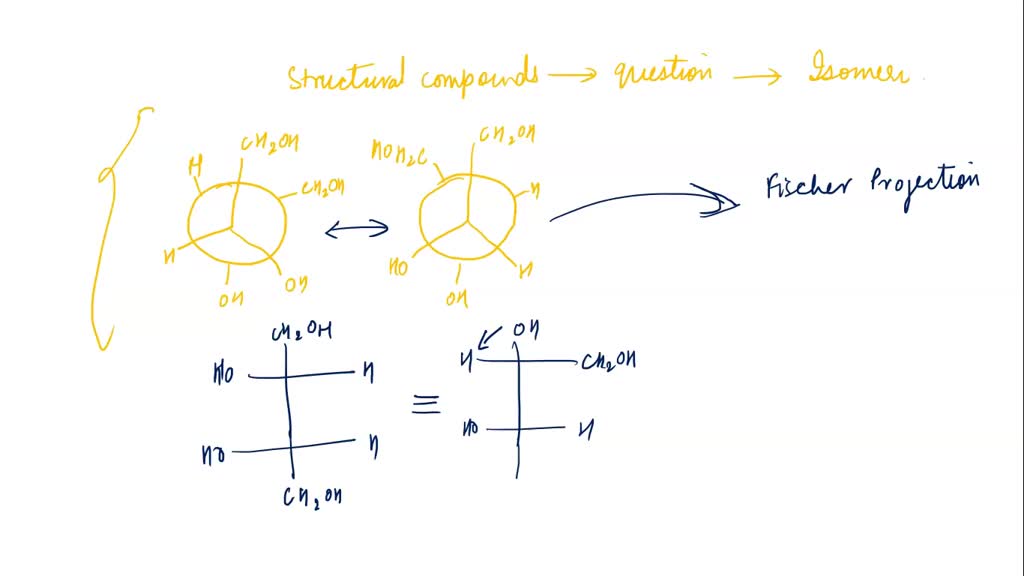 Structural compounds → question → Isomer
H CH2OH CH2OH
H OH OH
HOH2C CH2OH H
HO OH H
Fischer Projection
CH2OH
HO H
HO H
CH2OH
≡
OH
H CH2OH
HO H